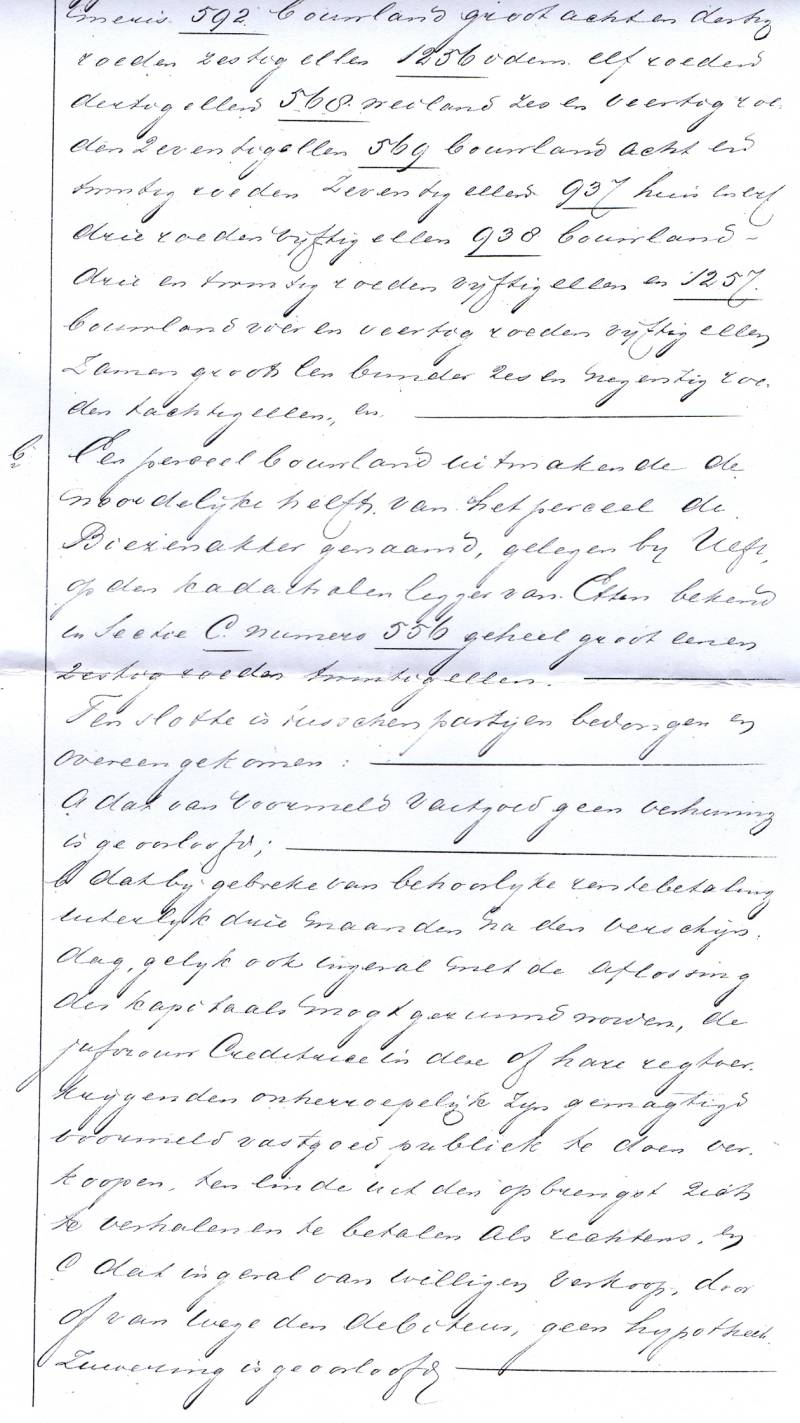 meris 592 bouwland groot acht en dertig
roeden zestig ellen 1256 idem elf roeden
dertig ellen 568 weiland zes en veertig roe-
den zeventig ellen 569 bouwland acht en
twintig roeden zeventig ellen 937 huis en erf
drie roeden vyftig ellen 938 bouwland -
drie en twintig roeden vyftig ellen en 1257.
bouwland vier en veertig roeden vyftig ellen
Zamen groot een bunder zes en negentig roe-
den tachtig ellen, en
b Een perceel bouwland uitmakende de
noordelyke helft van het perceel de
Biezenakker genaamd, gelegen by Ulft,
op den kadastralen legger van Etten bekend
in Sectie C. numero 556 geheel groot een en
zestig roeden twintig ellen.
Ten slotte is tusschen partyen bedongen en
overeengekomen:
a dat van voormeld vastgoed geen verhuring
is geoorloofd;
b dat by gebreke van behoorlyke rentebetaling
uiterlyk drie maanden na den verschyn-
dag, gelyk ook ingeval met de aflossing
des kapitaals mogt gezuimd worden, de
jufvrouw Creditrice in deze of hare regtver-
krygenden onherroepelyk zyn gemagtigd
voormeld vastgoed publiek te doen ver-
koopen, ten einde uit den opbrengst zich
te verhalen en te betalen als rechtens, en
C dat ingeval van willigen verkoop, door
of van wege den debiteur, geen hypotheek
Zuivering is geoorloofd